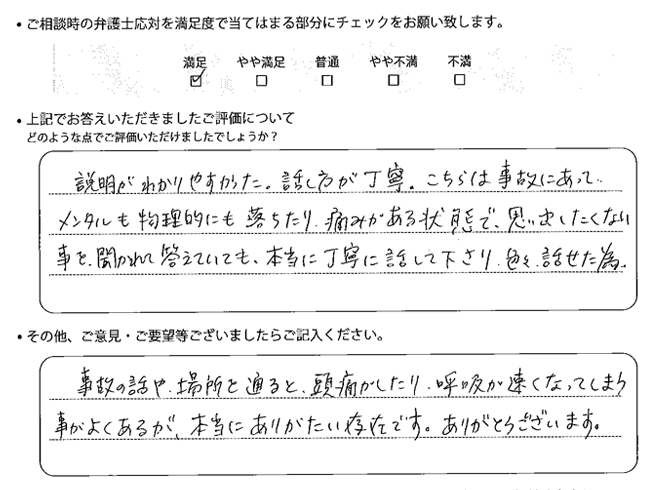 ・ご相談時の弁護士応対を満足度で当てはまる部分にチェックをお願い致します。
満足 やや満足 普通 やや不満 不満
☑ □ □ □ □
・上記でお答えいただきましたご評価について
どのような点でご評価いただけましたでしょうか？
説明がわかりやすかった。話し方が丁寧。こちらは事故にあって
メンタルも物理的にも落ちたり、痛みがある状態で、思い出したくない
事を、聞かれて答えていても、本当に丁寧に話して下さり、色々、話せた為。
・その他、ご意見・ご要望等ございましたらご記入ください。
事故の話や、場所を通ると、頭痛がしたり、呼吸が速くなってしまう
事がよくあるが、本当にありがたい存在です。ありがとうございます。